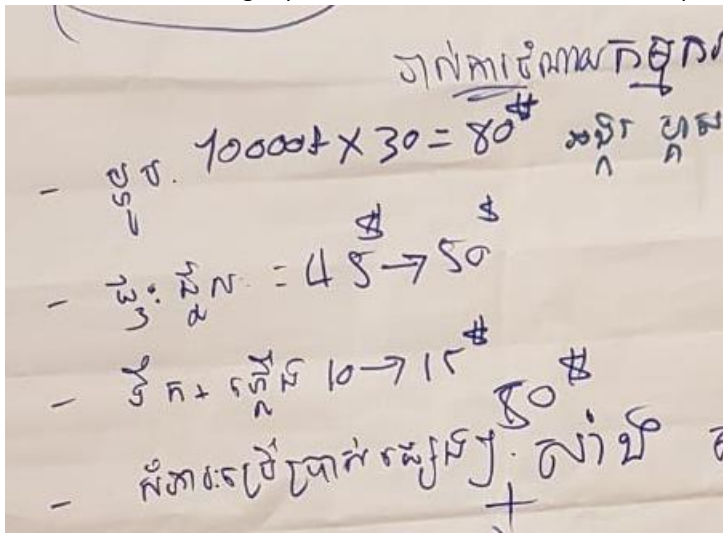 រាល់ការចំណាយកម្មករ
- ម្ហូប. 10000៛ x 30 = 80$ អង្ករ
- ផ្ទះជួល = 45$ → 50$
- ទឹក + ភ្លើង 10 → 15$
- សំភារៈប្រើប្រាស់ផ្សេងៗ. 50$ សាំង